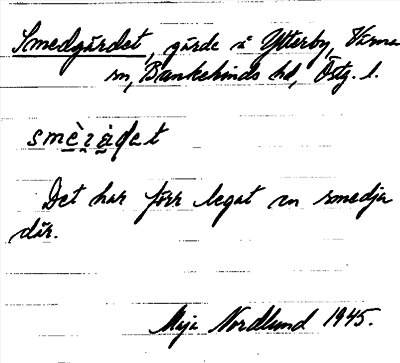 Smedgärdet, gärde å Ytterby, Värna
sn, Bankekinds hd, Östg. l.
smèɹàdet
Det har förr legat en smedja
där.
Maja Nordlund 1945.